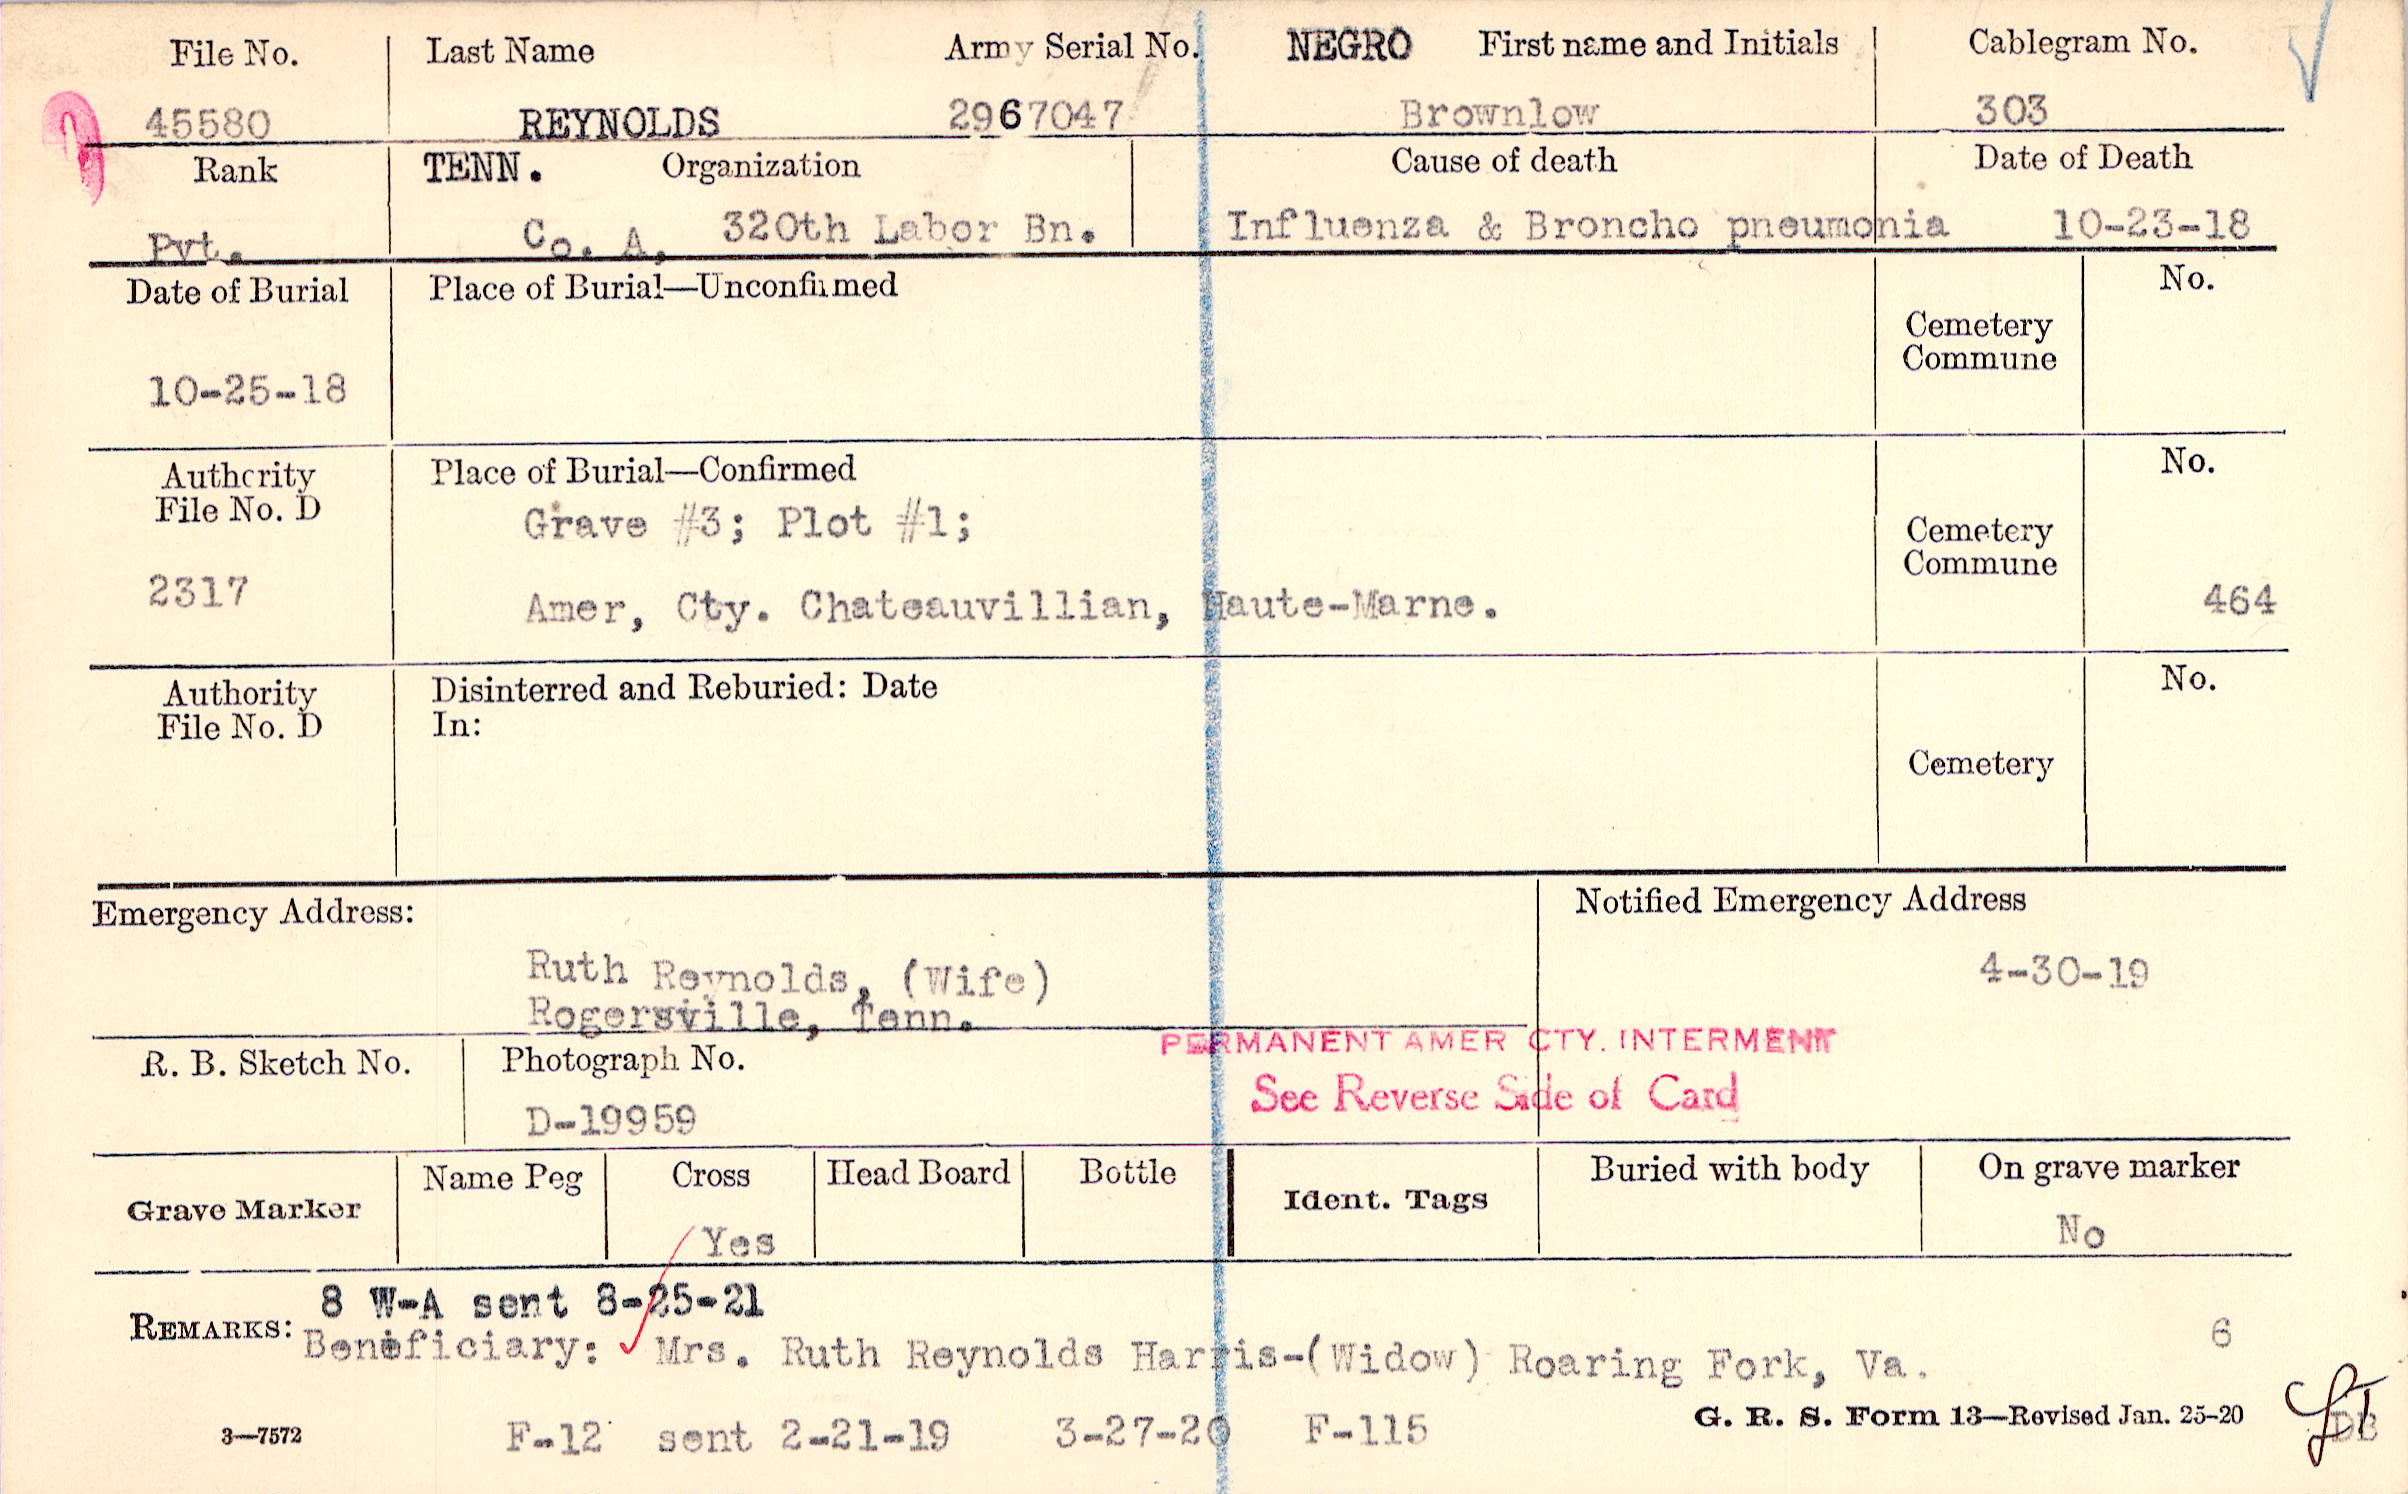 File No. Last Name Army Serial No. NEGRO First name and Initials Cablegram No.
45580 REYNOLDS 2967047 Brownlow 303
Rank TENN. Organization Cause of death Date of Death
Pvt. Co. A, 320th Labor Bn. Influenza & Broncho pneumonia 10-23-18
Date of Burial Place of Burial—Unconfirmed No.
Cemetery
Commune
10-25-18
Authority Place of Burial—Confirmed No.
File No. D Grave #3; Plot #1; Cemetery
Commune
2317 Amer, Cty. Chateauvillian, Haute-Marne. 464
Authority Disinterred and Reburied: Date No.
File No. D In:
Cemetery
Emergency Address: Notified Emergency Address
Ruth Reynolds, (Wife) 4-30-19
Rogersville, Tenn.
PERMANENT AMER CTY. INTERMENT
R. B. Sketch No. Photograph No.
See Reverse Side of Card
D-19959
Grave Marker Name Peg Cross Head Board Bottle Ident. Tags Buried with body On grave marker
Yes No
8 W-A sent 8-25-21
REMARKS: Beneficiary: Mrs. Ruth Reynolds Harris-(Widow) Roaring Fork, Va. 6
G. R. S. Form 13—Revised Jan. 25-20
3—7572 F-12 sent 2-21-19 3-27-20 F-115 DB